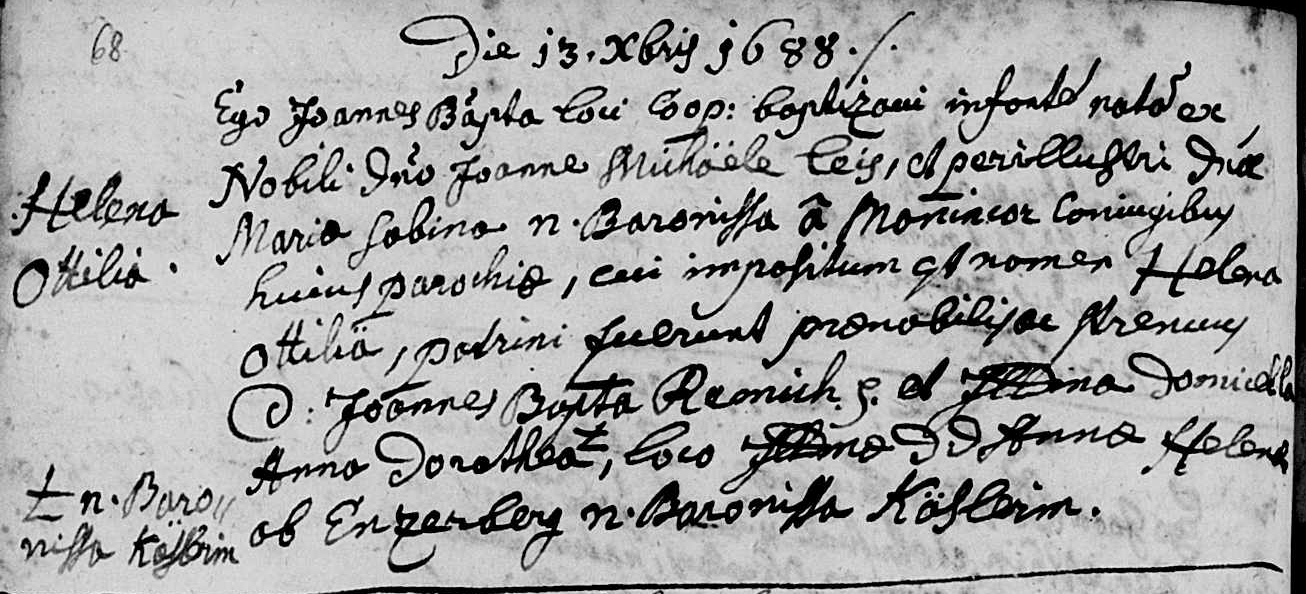 68
Die 13. Xbris 1688 ./.
Ego Joannes Bapta loci Coop: baptizavi infanté natã ex
Nobili dño Joanne Michäele Leis, et perillustri dñã
Helena
Maria Sabina n. Baronissa â Coniugibus
Ottilia.
huius parochiæ, cui impositum est nomen Helena
Ottilia, patrini fuerunt prænobilis ac strenuus
D: Joannes Bapta Remich. et Illma domicella
Anna Dorothea ±, loco Illmæ D D Annæ Helenæ
± n. Baro//
ab Enzerberg n. Baronissa Käslerin.
nissa Käslerin